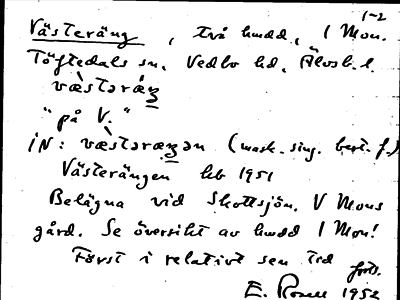 1-2
Västeräng, två hmdd, 1 Mon.
Töftedals sn. Vedbo hd. Älvsb. l.
væ̀stərǽŋ
"på V."
iN: væ̀stəræŋən (mask. sing. best. f.)
Västerängen hb 1951
Belägna vid Skottsjön. V Mons
gård. Se översikt av hmdd 1 Mon!
Först i relativt sen tid
forts.
E. Rosell 1952